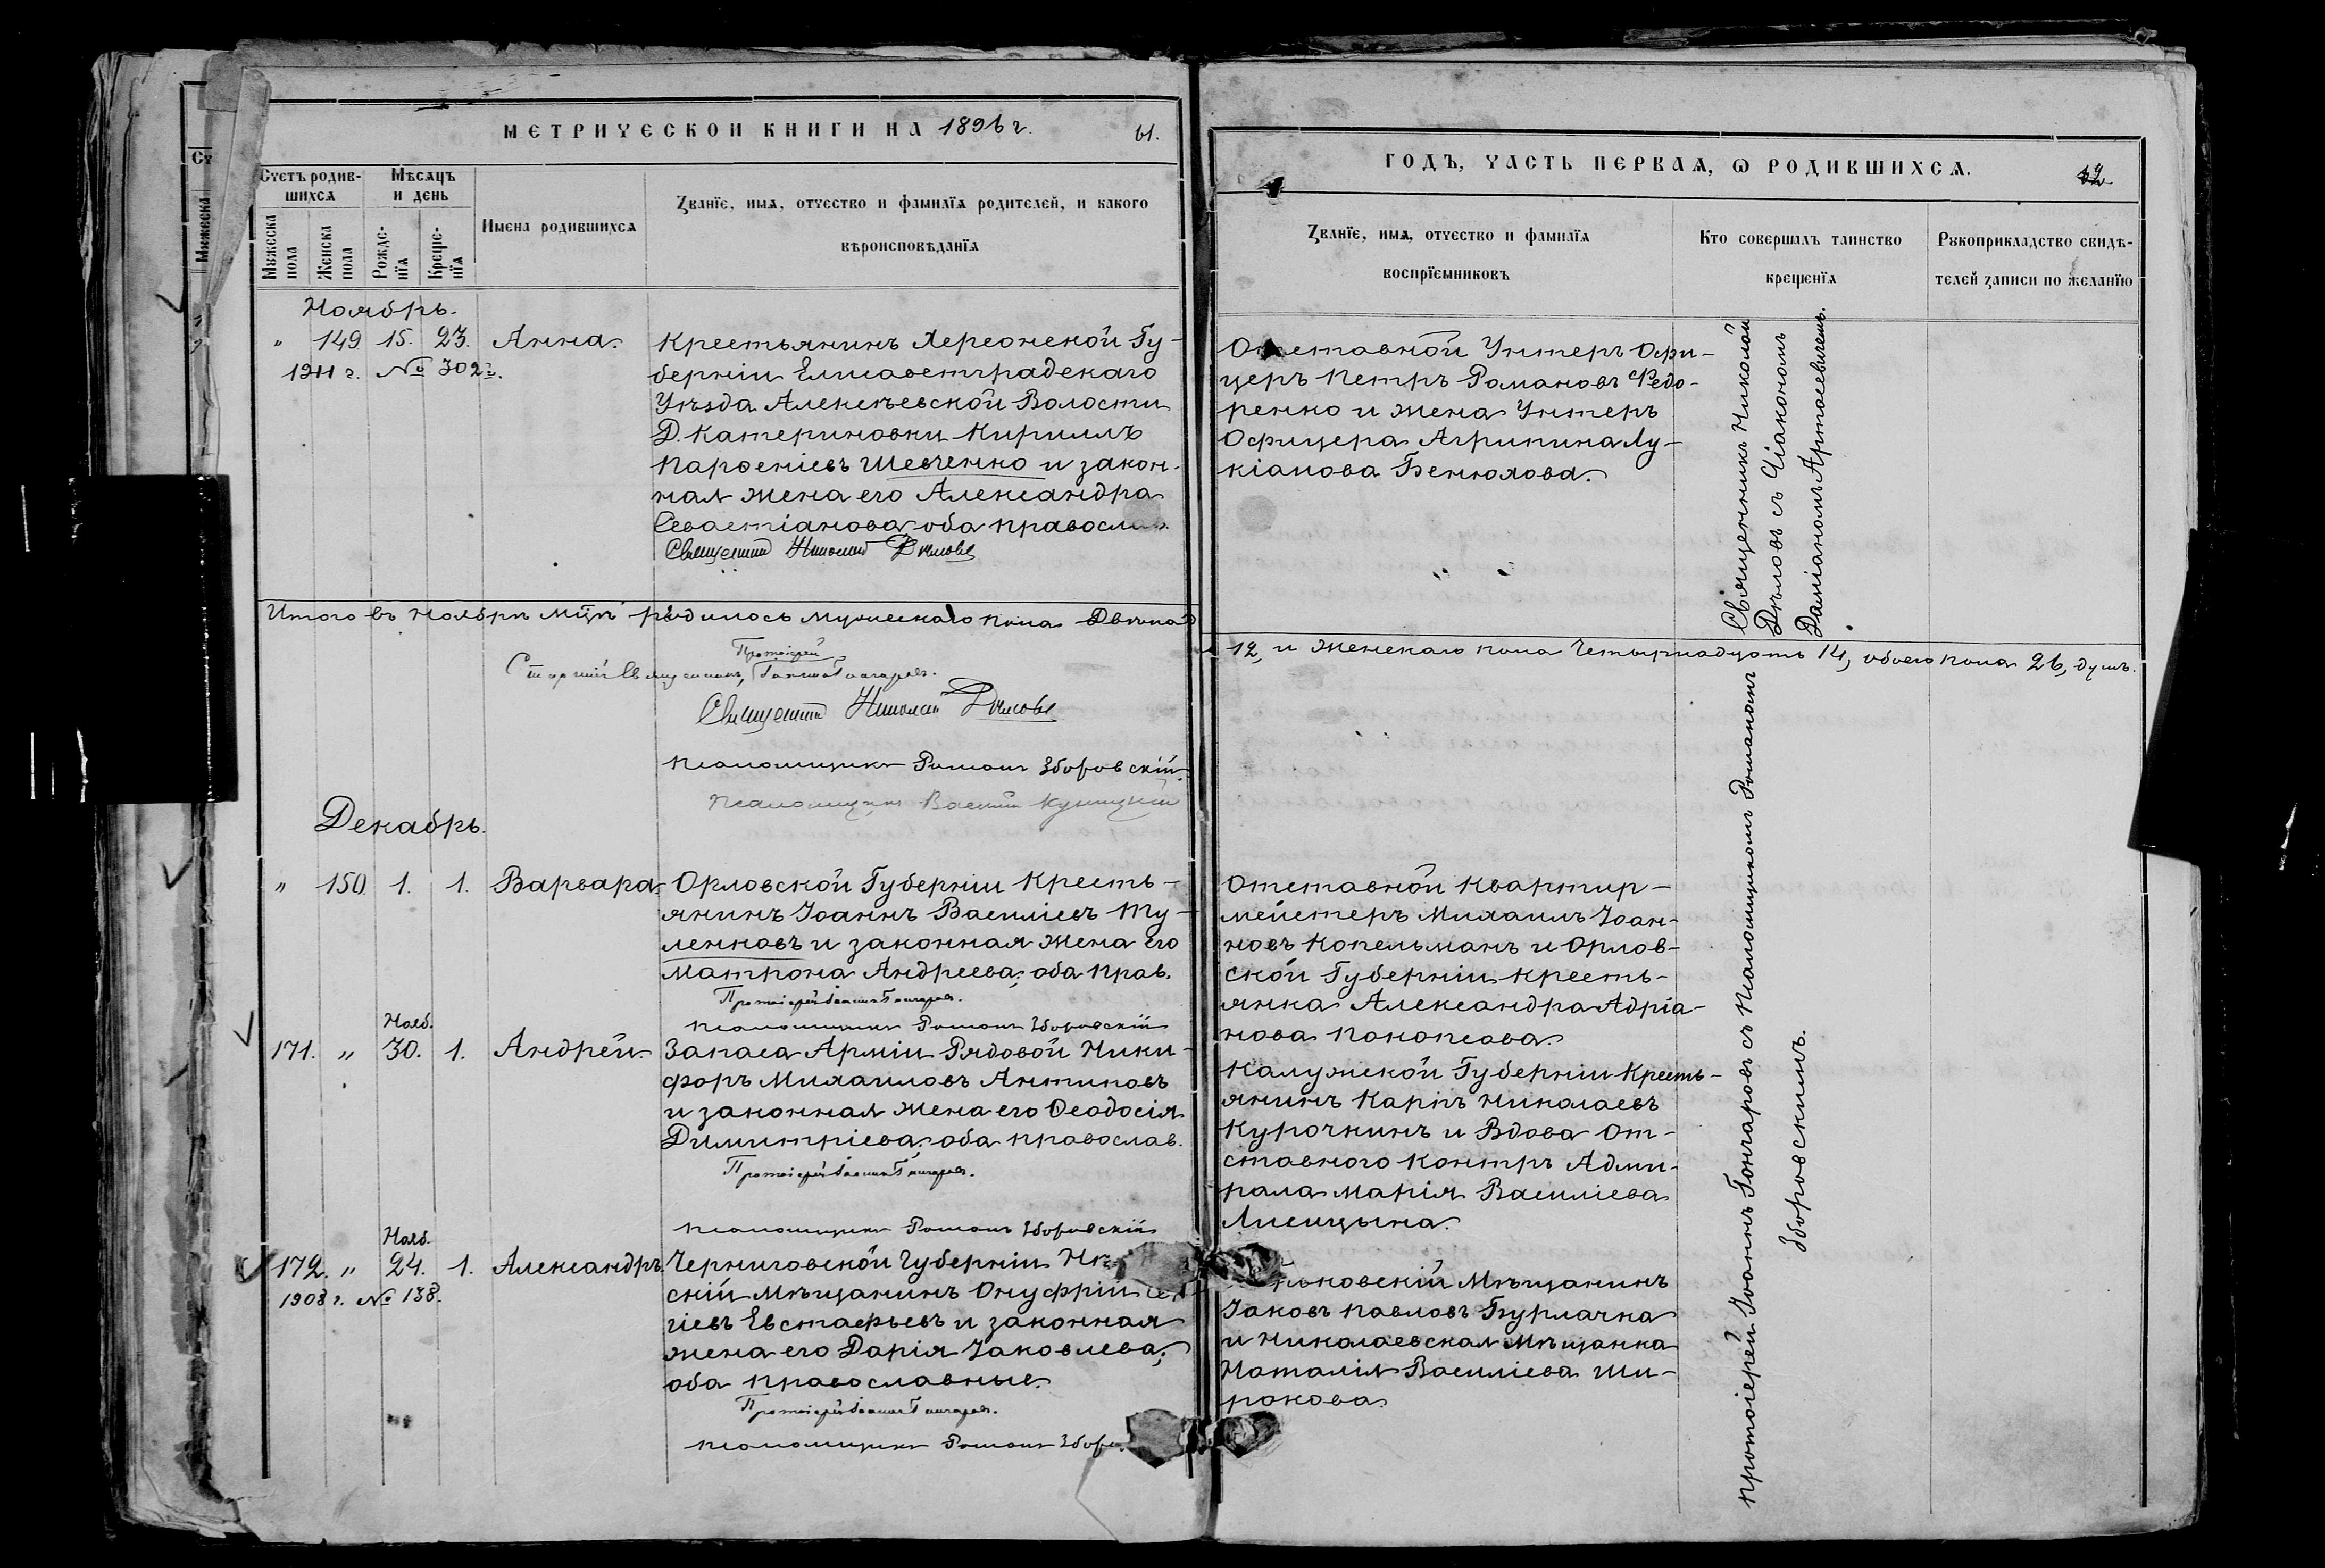 МЕТРИЧЕСКОЙ КНИГИ НА 1896 г.
61.
Счетъ родив-
шихся
Мѣсяцъ
и день
Мужеска
пола
Женска
пола
Рожде-
нїя
Креще-
нїя
Имена родившихся
Званїе, имя, отчество и фамилїя родителей, и какого
вѣроисповѣданїя
Ноябрь.
" 149 15. 23. Анна.
1911 г. № 302
Крестьянинъ Херсонской Гу-
берніи Елисаветградскаго
Уѣзда Алексѣевской Волости
Д. Катериновки Кириллъ
Парѳеніевъ Шевченко и закон-
ная жена его Александра
Севастіанова оба православ.
Священникъ Николай Дѣловъ
Итого въ Ноябрѣ мцѣ родилось мужескаго пола Двѣнад
Протоіерей
Старшій Священникъ, Іоаннъ Гончаровъ.
Священникъ Николай Дѣловъ
Псаломщикъ Романъ Зборовскій
Псаломщикъ Василій Куницкій
Декабрь.
" 150 1. 1. Варвара
Орловской Губерніи Кресть-
янинъ Іоаннъ Василіевъ Ту-
ленковъ и законная жена его
Матрона Андреева; оба прав.
Протоіерей Іоаннъ Гончаровъ.
Псаломщикъ Романъ Зборовскій
171. " Нояб. 30. 1. Андрей
Запаса Арміи Рядовой Ники-
форъ Михаиловъ Антиповъ
и законная жена его Ѳеодосія
Димитріева; оба православ.
Протоіерей Іоаннъ Гончаровъ.
Псаломщикъ Романъ Зборовскій
172. " Нояб. 24. 1. Александръ
1908 г. № 138.
Черниговской Губерніи
скій Мѣщанинъ Онуфрій
гіевъ Евстафьевъ и законная
жена его Дарія Іаковлева;
оба православные.
Протоіерей Іоаннъ Гончаровъ.
Псаломщикъ Романъ Зборо
ГОДЪ, ЧАСТЬ ПЕРВАЯ, Ѡ РОДИВШИХСЯ.
62
Званїе, имя, отчество и фамилїя
воспрїемниковъ
Кто совершалъ таинство
крещенїя
Рукоприкладство свидѣ-
телей записи по желанїю
Отставной Унтеръ Офи-
церъ Петръ Романовъ Федо-
ренко и жена Унтеръ
Офицера Агрипина Лу-
кіанова Бенюхова.
Священникъ Николай
Дѣловъ съ Діакономъ
Даміаномъ Артасевичемъ.
12, и Женскаго пола Четырнадцать 14, обоего пола 26, душъ.
Отставной Квартир-
мейстеръ Михаилъ Іоан-
новъ Копельманъ и Орлов-
ской Губерніи Кресть-
янка Александра Адріа-
нова Покопсова.
Калужской Губерніи Кресть-
янинъ Карпъ Николаевъ
Курочкинъ и Вдова От-
ставного Контръ Адми-
рала Марія Василіева
Лисицына.
новскій Мѣщанинъ
Іаковъ Павловъ Бурлачка
и Николаевская Мѣщанка
Наталія Василіева Ши-
рокова
Протоіерей Іоаннъ Гончаровъ съ Псаломщикомъ Романомъ
Зборовскимъ.